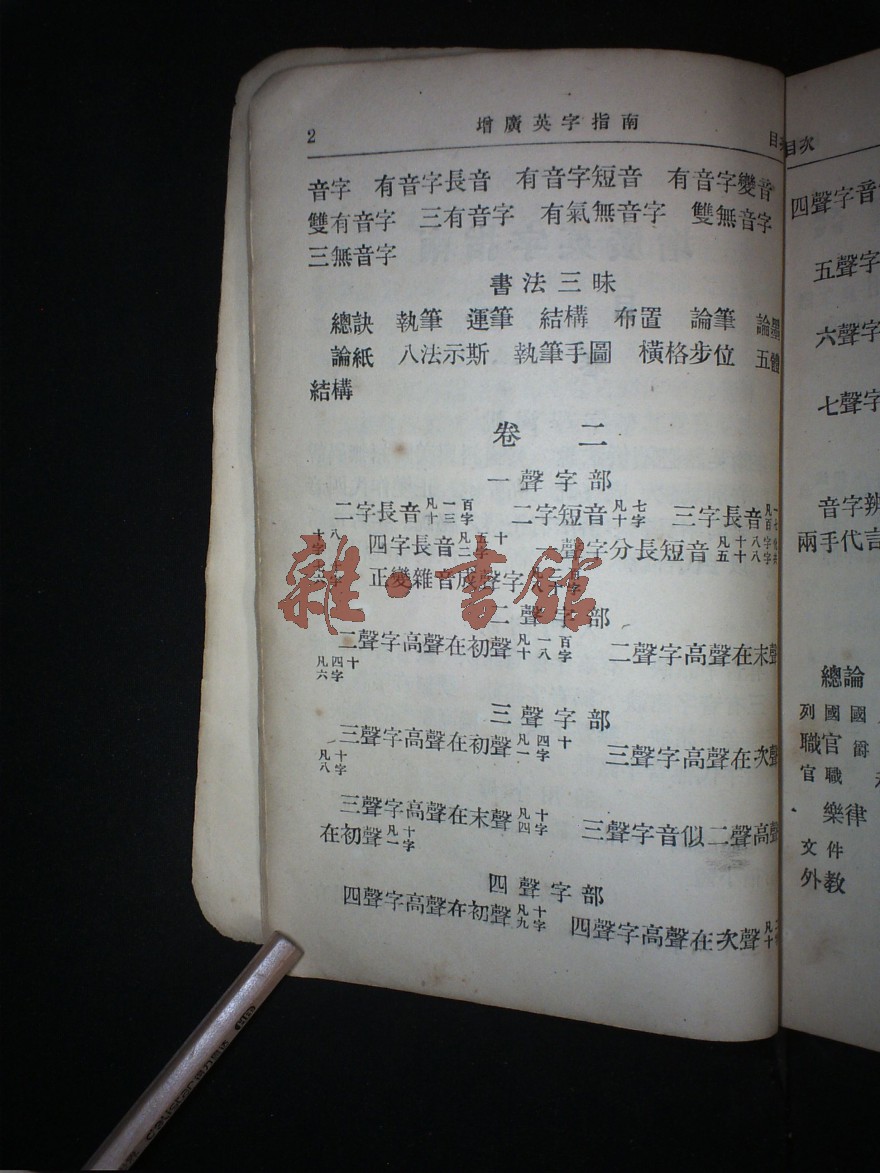 2 增廣英字指南 目
音字 有音字長音 有音字短音 有音字變音
雙有音字 三有音字 有氣無音字 雙無音字
三無音字
書法三昧
總訣 執筆 運筆 結構 布置 論筆 論墨
論紙 八法示斯 執筆手圖 橫格步位 五體
結構
卷二
一聲字部
二字長音凡一百十三字 二字短音凡七十字 三字長音
四字長音 聲字分長短音凡八十五十八字
正變雜音成聲字
二聲字部
二聲字高聲在初聲凡一百十八字 二聲字高聲在末聲
凡四十六字
三聲字部
三聲字高聲在初聲凡四十一字 三聲字高聲在次聲
凡十八字
三聲字高聲在末聲凡十四字 三聲字音似二聲高聲
在初聲凡十一字
四聲字部
四聲字高聲在初聲凡十九字 四聲字高聲在次聲
雜·書館
目次
四聲字音
五聲字
六聲字
七聲字
音字辨
兩手代言
總論
列國國
職官 爵
官職
樂律
文件
外教